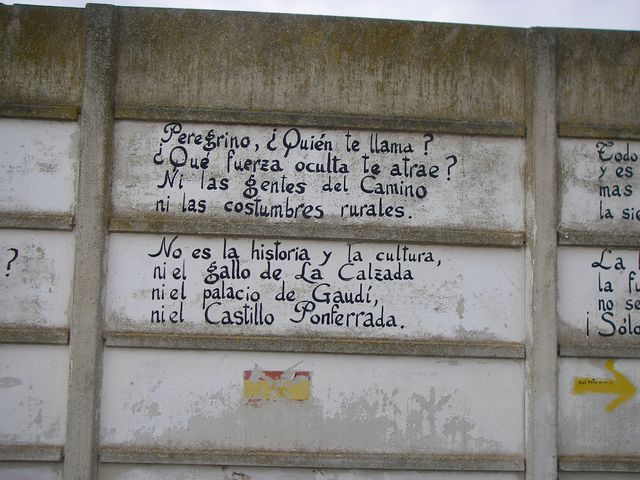 Peregrino, ¿Quién te llama?
¿Qué fuerza oculta te atrae?
Ni las gentes del Camino
ni las costumbres rurales.
No es la historia y la cultura,
ni el gallo de La Calzada
ni el palacio de Gaudí,
ni el Castillo Ponferrada.
?
Todo
y es
mas
la
La
la
no
¡Sólo